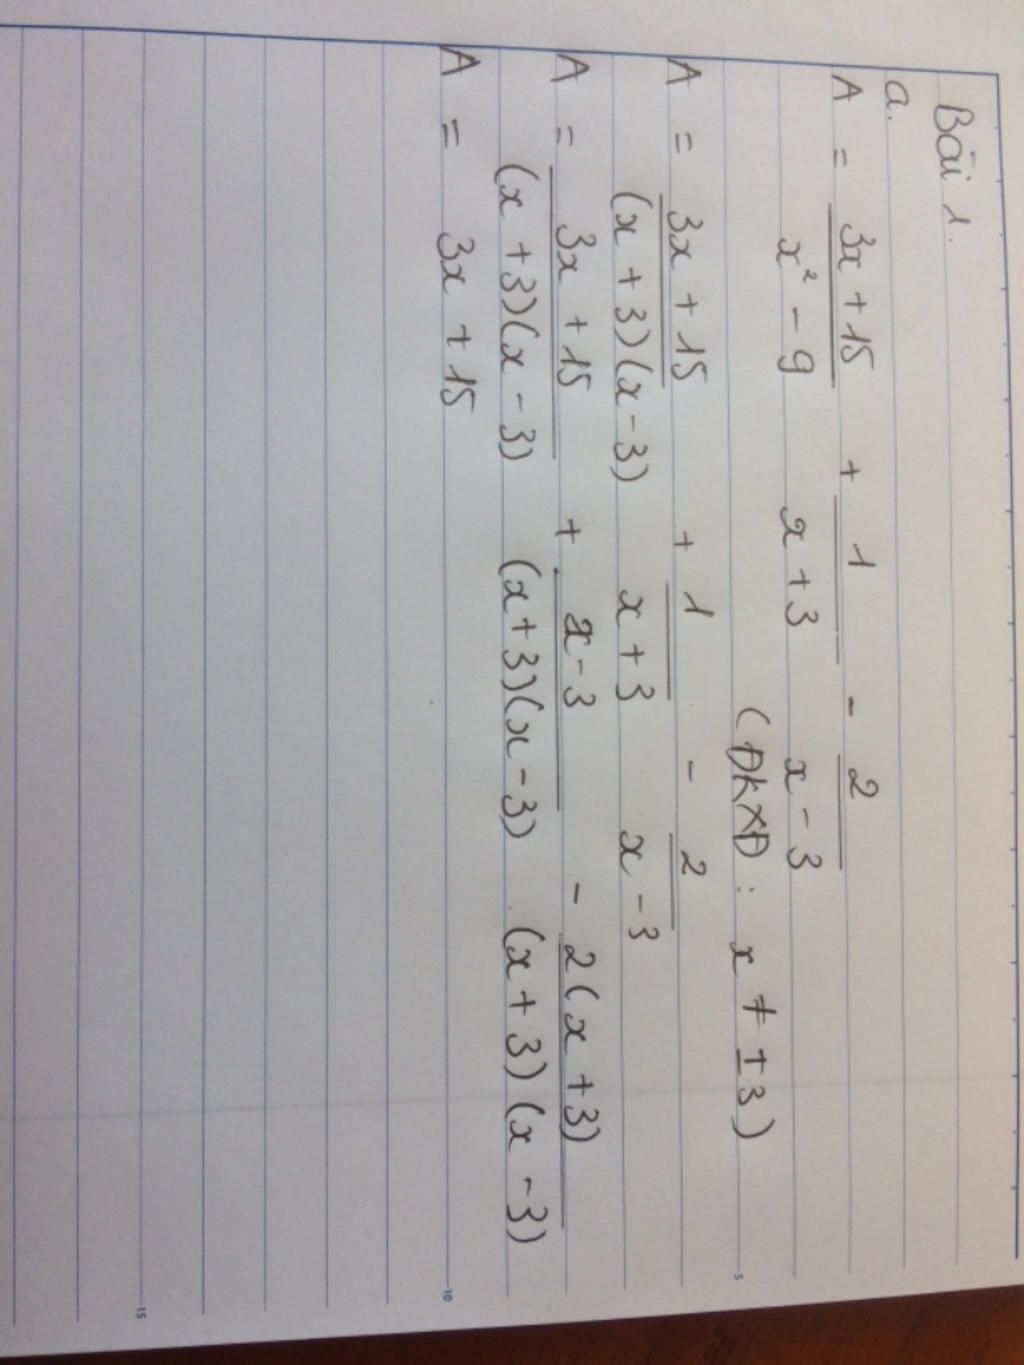 Bài 1.
a.
A = 3x + 15 / x² - 9 + 1 / x + 3 - 2 / x - 3
(ĐKXĐ : x ≠ ± 3)
A = 3x + 15 / (x + 3)(x - 3) + 1 / x + 3 - 2 / x - 3
A = 3x + 15 / (x + 3)(x - 3) + x - 3 / (x + 3)(x - 3) - 2(x + 3) / (x + 3)(x - 3)
A = 3x + 15
5
10
15